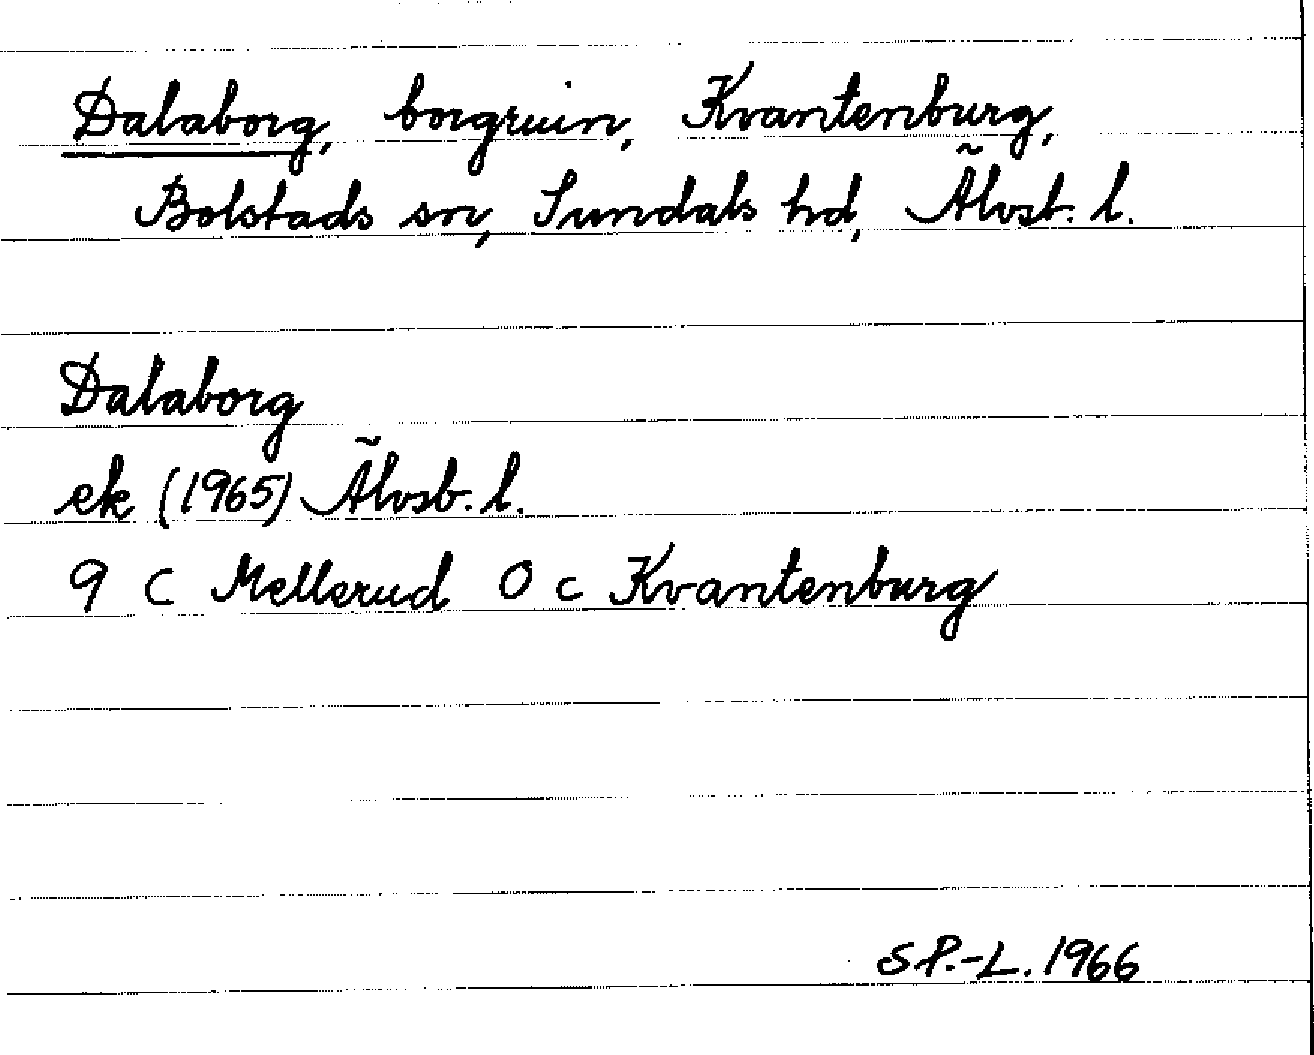 Dalaborg, borgruin, Kvantenburg,
Bolstads sn, Sundals hd, Älvsb. l.
Dalaborg
ek (1965) Älvsb. l.
9 C Mellerud 0 c Kvantenburg
SP.-L. 1966